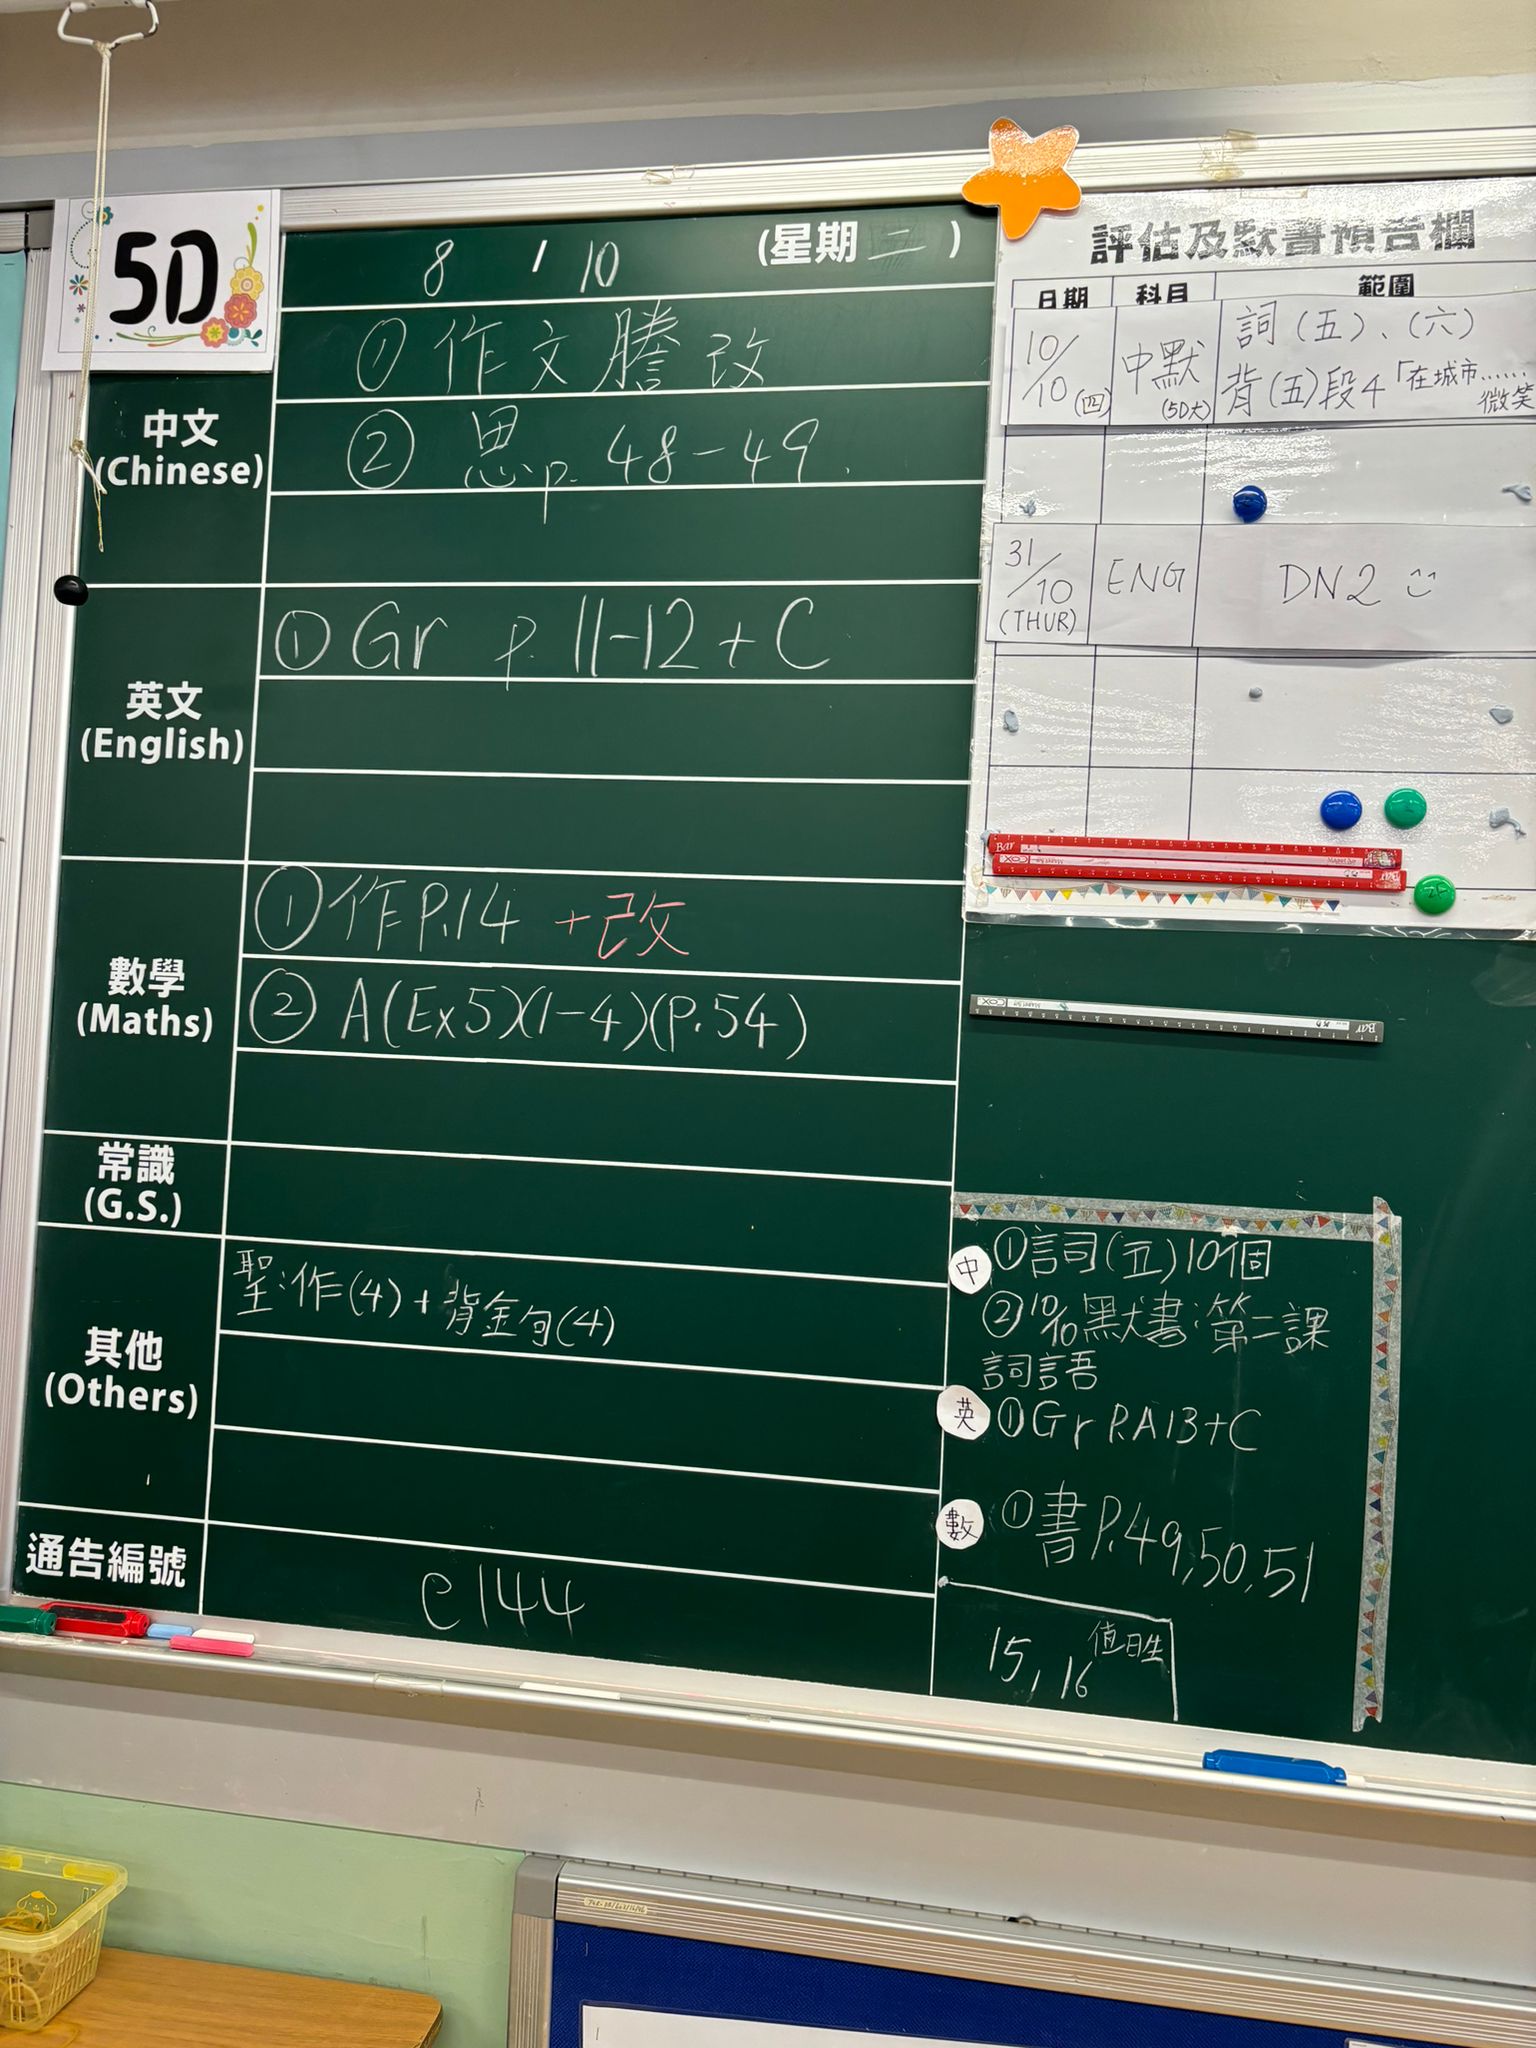 5D
8 / 10 (星期 二 )
中文
(Chinese)
① 作文謄改
② 思p. 48-49.
英文
(English)
① Gr p. 11-12 + C
數學
(Maths)
① 作P.14 + 改
② A(Ex5)(1-4)(P.54)
常識
(G.S.)
其他
(Others)
聖:作(4)+背金句(4)
通告編號
e144
評估及默書預告欄
日期 科目 範圍
10/10 (四) 中默 (5D犬) 詞(五)、(六)
背(五)段4「在城市……微笑
31/10 (THUR) ENG DN2
Bar
COX
COX
Bar
中 ①詞(五)10個
②10/10默書:第二課
詞語
英 ①Gr P.A13+C
數 ①書P.49,50,51
15, 16 值日生